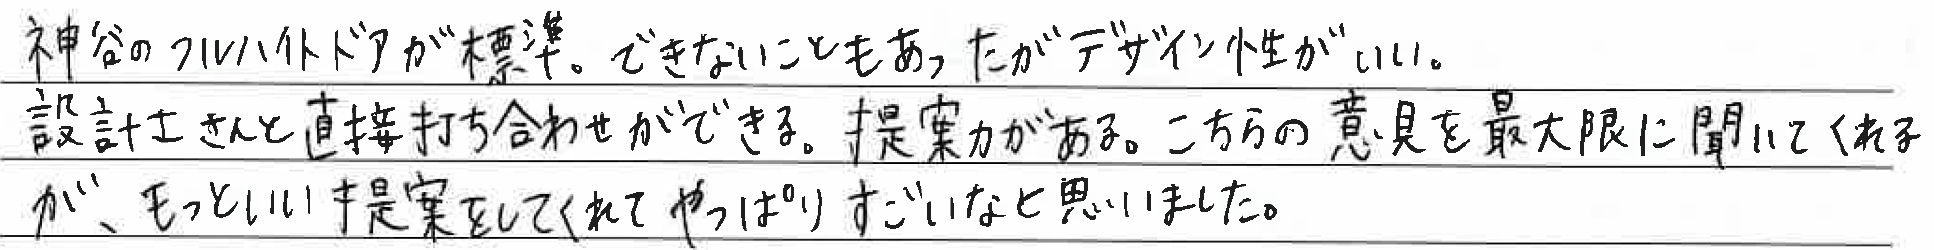 神谷のフルハイトドアが標準。できないこともあったがデザイン性がいい。
設計士さんと直接打ち合わせができる。提案力がある。こちらの意見を最大限に聞いてくれる
が、もっといい提案をしてくれてやっぱりすごいなと思いました。